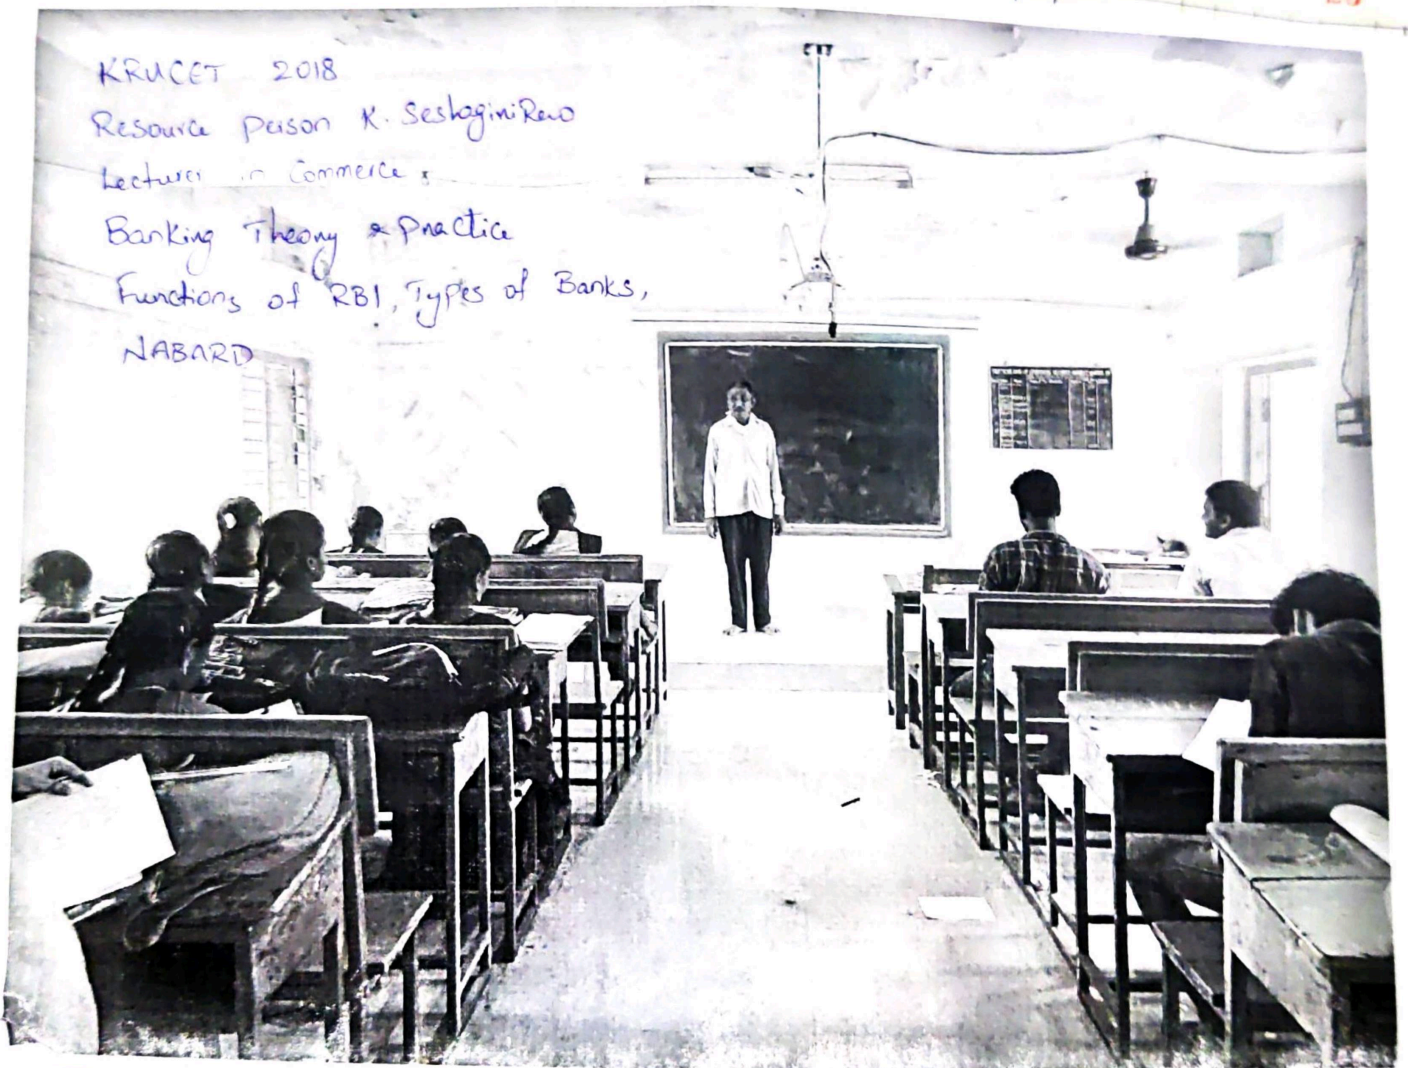 KRUCET 2018
Resource person K. SeshagiriRao
Lecturer in Commerce,
Banking Theory & Practice
Functions of RBI, Types of Banks,
NABARD